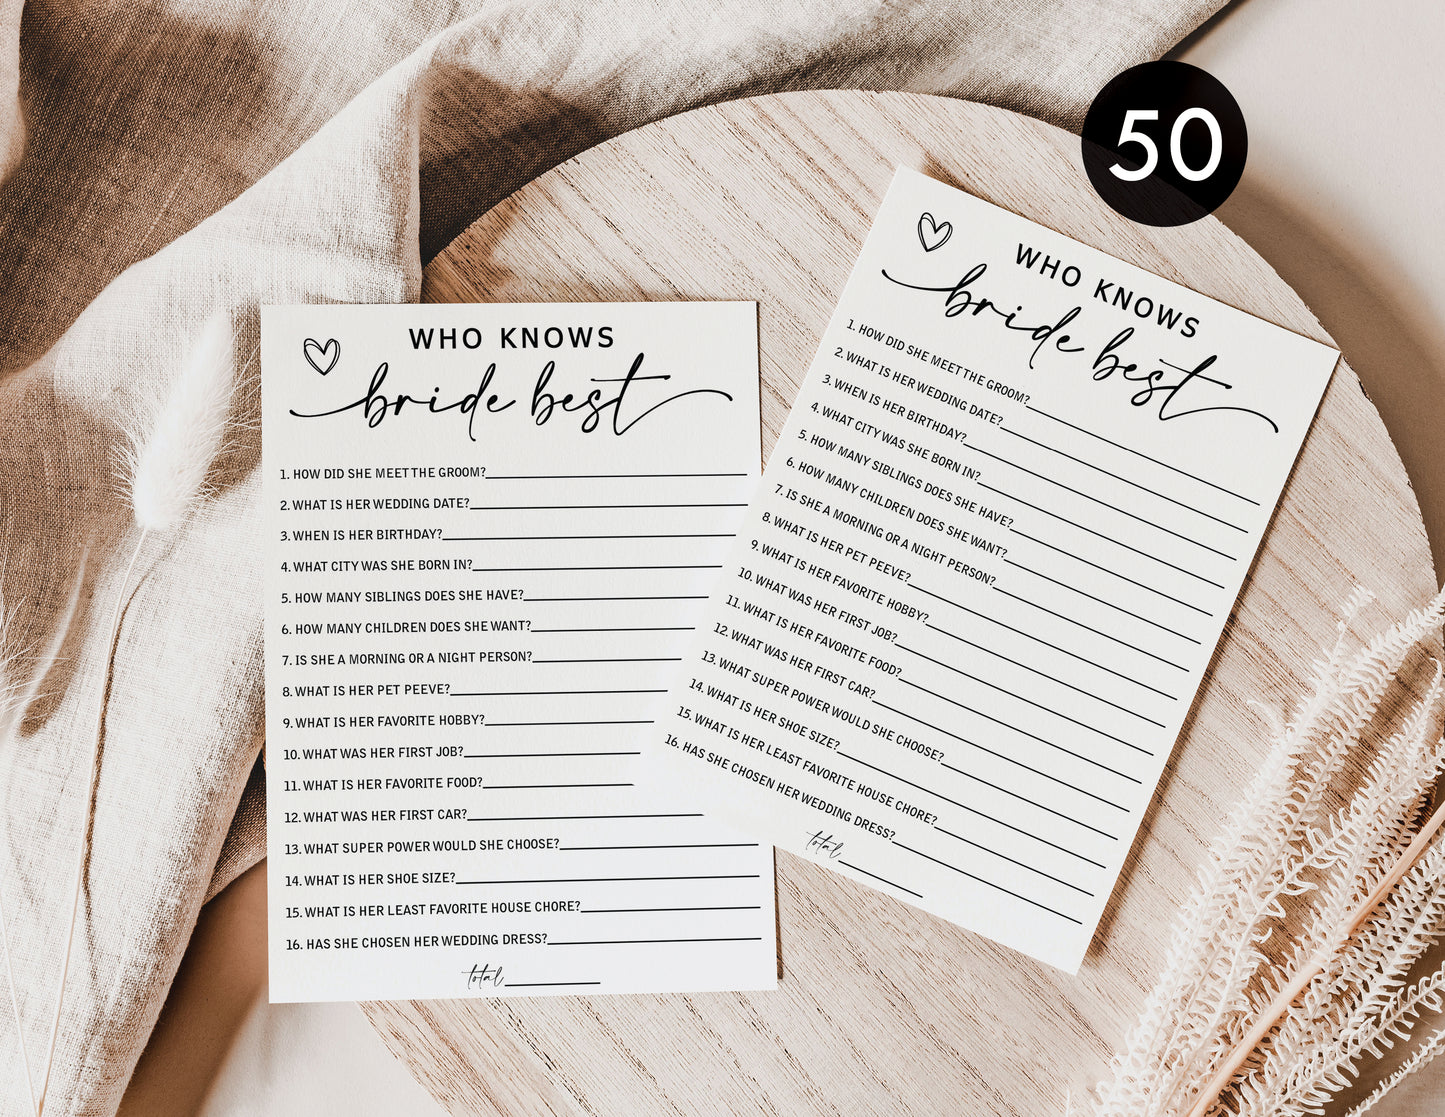 50
WHO KNOWS
bride best
1. HOW DID SHE MEET THE GROOM?
2. WHAT IS HER WEDDING DATE?
3. WHEN IS HER BIRTHDAY?
4. WHAT CITY WAS SHE BORN IN?
5. HOW MANY SIBLINGS DOES SHE HAVE?
6. HOW MANY CHILDREN DOES SHE WANT?
7. IS SHE A MORNING OR A NIGHT PERSON?
8. WHAT IS HER PET PEEVE?
9. WHAT IS HER FAVORITE HOBBY?
10. WHAT WAS HER FIRST JOB?
11. WHAT IS HER FAVORITE FOOD?
12. WHAT WAS HER FIRST CAR?
13. WHAT SUPER POWER WOULD SHE CHOOSE?
14. WHAT IS HER SHOE SIZE?
15. WHAT IS HER LEAST FAVORITE HOUSE CHORE?
16. HAS SHE CHOSEN HER WEDDING DRESS?
total
WHO KNOWS
bride best
1. HOW DID SHE MEET THE GROOM?
2. WHAT IS HER WEDDING DATE?
3. WHEN IS HER BIRTHDAY?
4. WHAT CITY WAS SHE BORN IN?
5. HOW MANY SIBLINGS DOES SHE HAVE?
6. HOW MANY CHILDREN DOES SHE WANT?
7. IS SHE A MORNING OR A NIGHT PERSON?
8. WHAT IS HER PET PEEVE?
9. WHAT IS HER FAVORITE HOBBY?
10. WHAT WAS HER FIRST JOB?
11. WHAT IS HER FAVORITE FOOD?
12. WHAT WAS HER FIRST CAR?
13. WHAT SUPER POWER WOULD SHE CHOOSE?
14. WHAT IS HER SHOE SIZE?
15. WHAT IS HER LEAST FAVORITE HOUSE CHORE?
16. HAS SHE CHOSEN HER WEDDING DRESS?
total